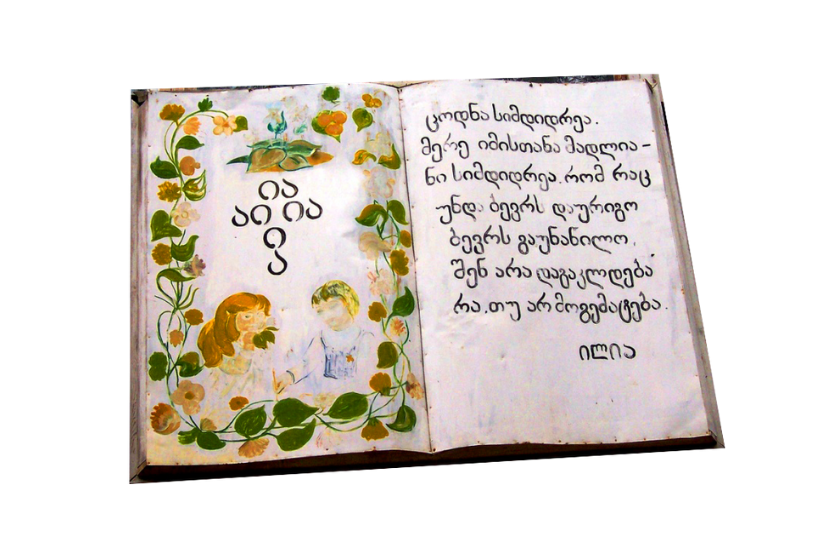 ია
აი ია
ი
ა
ცოდნა სიმდიდრეა.
მერე იმისთანა მადლია-
ნი სიმდიდრეა. რომ რაც
უნდა ბევრს დაურიგო
ბევრს გაუნაწილო,
შენ არა დაგაკლდება
რა. თუ არ მოგემატება.
ილია